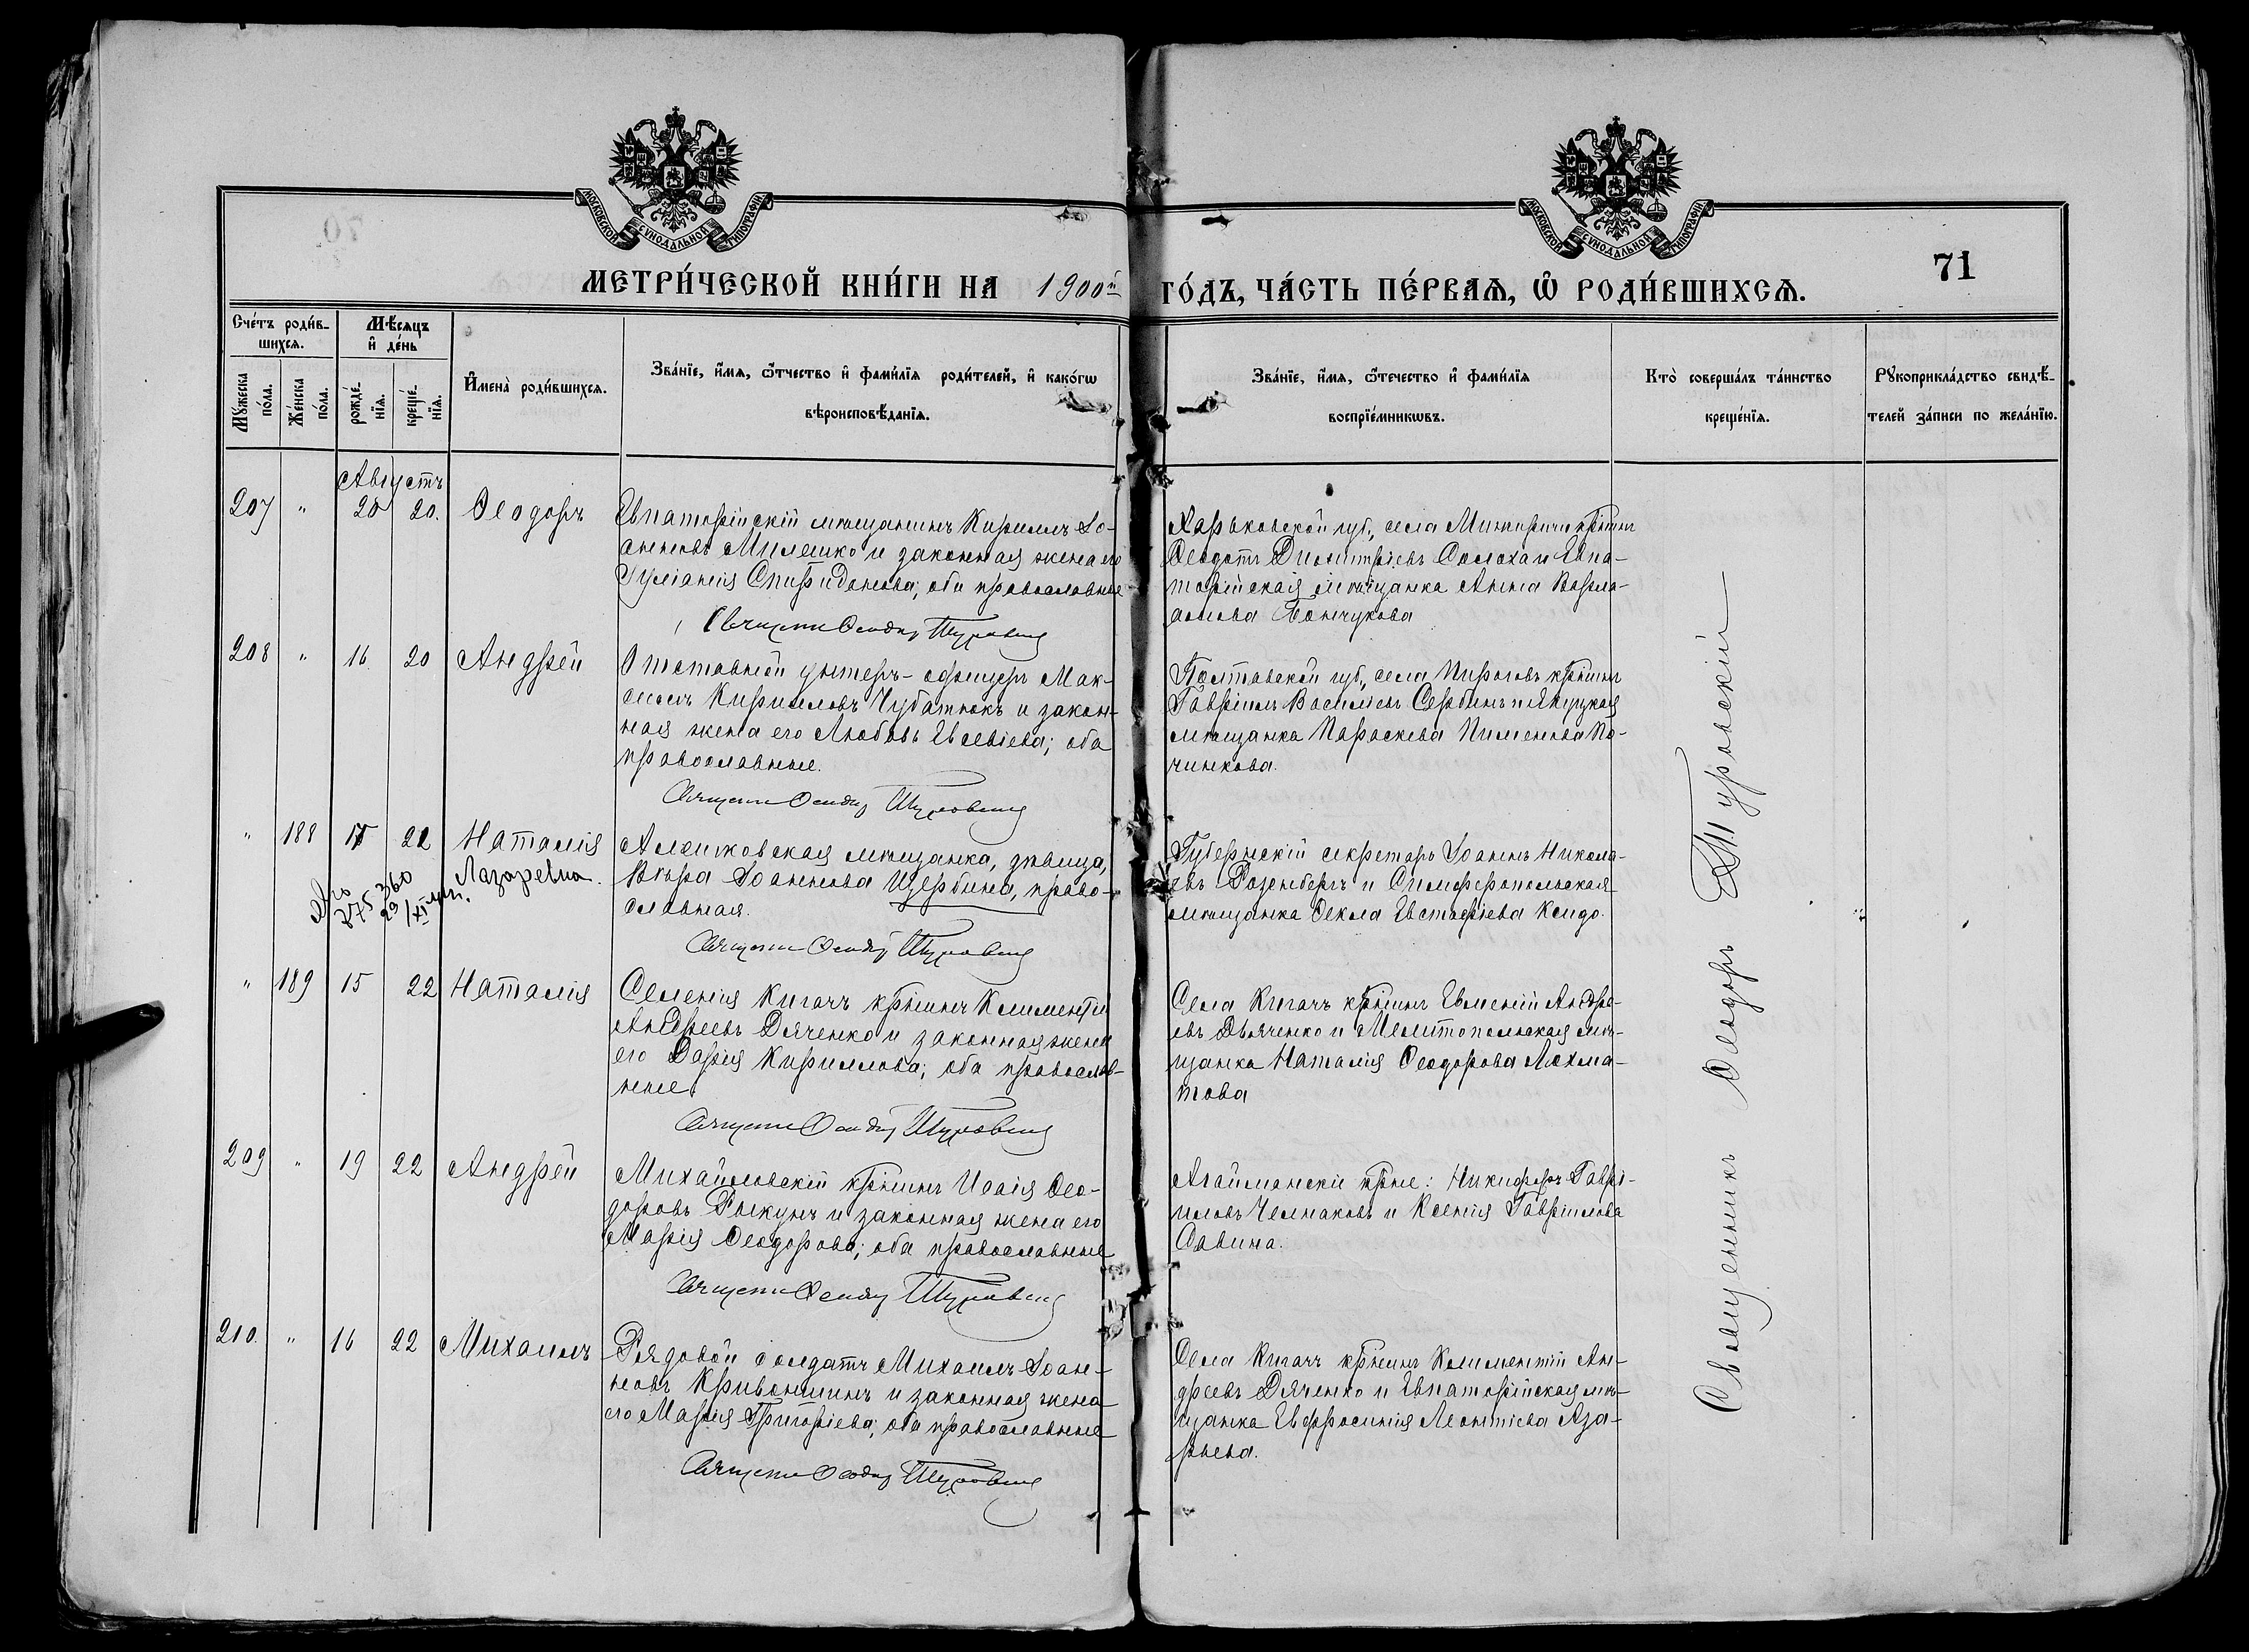 МОСКОВСКОЙ СѴНОДАЛЬНОЙ ТИПОГРАФІИ
МОСКОВСКОЙ СѴНОДАЛЬНОЙ ТИПОГРАФІИ
71
МЕТРИ́ЧЕСКОЙ КНИ́ГИ НА 1900й ГО́ДЪ, ЧА́СТЬ ПЕ́РВАѦ, Ѡ҆ РОДИ́ВШИХСѦ.
Сче́тъ роди́в-
шихсѧ.
Мꙋ́жеска по́ла.
Же́нска по́ла.
Мѣ́сѧцъ
и҆ де́нь
рожде́-
нїѧ.
креще́-
нїѧ.
И҆мена̀ роди́вшихсѧ.
Зва́нїе, и҆́мѧ, ѻ҆́тчество и҆ фами́лїѧ роди́телей, и҆ како́гѡ
вѣроисповѣ́данїѧ.
Зва́нїе, и҆́мѧ, ѻ҆́течество и҆ фами́лїѧ
воспрїе́мникѡвъ.
Кто̀ соверша́лъ та́инство
креще́нїѧ.
Рꙋкоприкла́дство свидѣ́-
телей за́писи по жела́нїю.
Августъ
207 " 20 20. Ѳеодоръ
Евпаторійскій мѣщанинъ Кириллъ Іо-
анновъ Милешко и законная жена его
Іуліанія Спиридонова; оба православные
Священ Ѳеодор Туровский
Харьковской губ., села Мижиричи крнинъ
Ѳеодотъ Димитріевъ Солоха и Евпа-
торійская мѣщанка Анна Варла-
амова Бончукова
208 " 16. 20 Андрей
Отставной унтеръ-офицеръ Мак-
симъ Кирилловъ Чубатюкъ и закон-
ная жена его Любовь Евсевіева; оба
православные.
Священ Ѳеодор Туровский
Полтавской губ., села Пироговъ крнинъ
Гавріилъ Васильевъ Сербинъ и Якуцкая
мѣщанка Параскева Пименова По-
чинкова.
" 188 15 22 Наталія
Лазаревна.
375 360
29/XI
Алешковская мѣщанка, дѣвица,
Вѣра Іоаннова Щербина, право-
славная.
Священ Ѳеодор Туровский
Губернскій секретарь Іоаннъ Никола-
евъ Розенбергъ и Симферопольская
мѣщанка Ѳекла Евстафіева Ксидо.
" 189 15 22 Наталія
Селенія Кигачъ крнинъ Климентій
Андреевъ Дяченко и законная жена
его Дарія Кириллова; оба православ-
ные.
Священ Ѳеодор Туровский
Села Кигачъ крнинъ Евменій Андре-
евъ Дьяченко и Мелитопольская мѣ-
щанка Наталія Ѳеодорова Лохма-
това
209 " 19 22 Андрей
Михайловскій крнинъ Исаія Ѳео-
доровъ Рыкунъ и законная жена его
Марія Ѳеодорова; оба православные
Священ Ѳеодор Туровский
Агайманскіе крне: Никифоръ Гаврі-
иловъ Челнаковъ и Ксенія Гавріилова
Савина.
210. " 16 22 Михаилъ
Рядовой солдатъ Михаилъ Іоан-
новъ Кривоншинъ и законная жена
его Марія Григоріева; оба православные
Священ Ѳеодор Туровский
Села Кигачъ крнинъ Климентій Ан-
дреевъ Дяченко и Евпаторійская мѣ-
щанка Евфросинія Леонтіева Аза-
рьева.
Священникъ Ѳеодоръ Туровскій